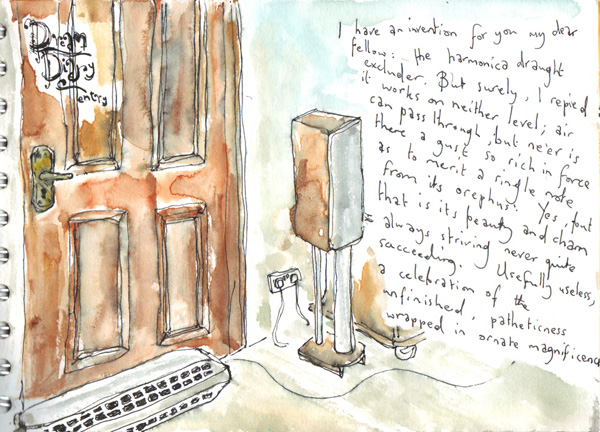 Dream
Diary
entry
I have an invention for you my dear
fellow: the harmonica draught
excluder. But surely, I replied
it works on neither level; air
can pass through, but ne'er is
there a gust so rich in force
as to merit a single note
from its orephus. Yes, but
that is its beauty and charm
always striving never quite
succeeding. Usefully useless,
a celebration of the
unfinished, patheticness
wrapped in ornate magnificence